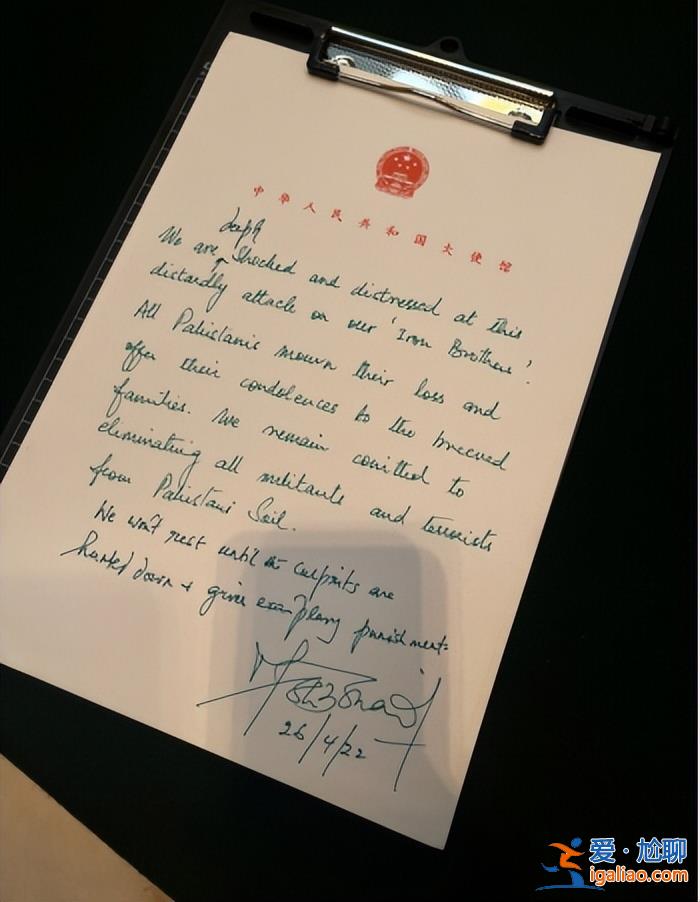 中华人民共和国大使馆
deeply
We are shocked and distressed at this
distardly attack on our 'Iron Brothers'.
All Pakistanis mourn their loss and
offer their condolences to the breeved
families. We remain comitted to
eliminating all militants and terrorists
from Pakistani Soil.
We won't rest until culprits are
hunted down + given exemplary punishment.
26/4/22
爱·尬聊
igaliao.com